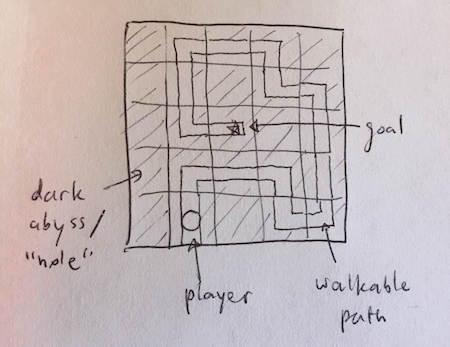 goal
dark
abyss/
"hole"
player
walkable
path